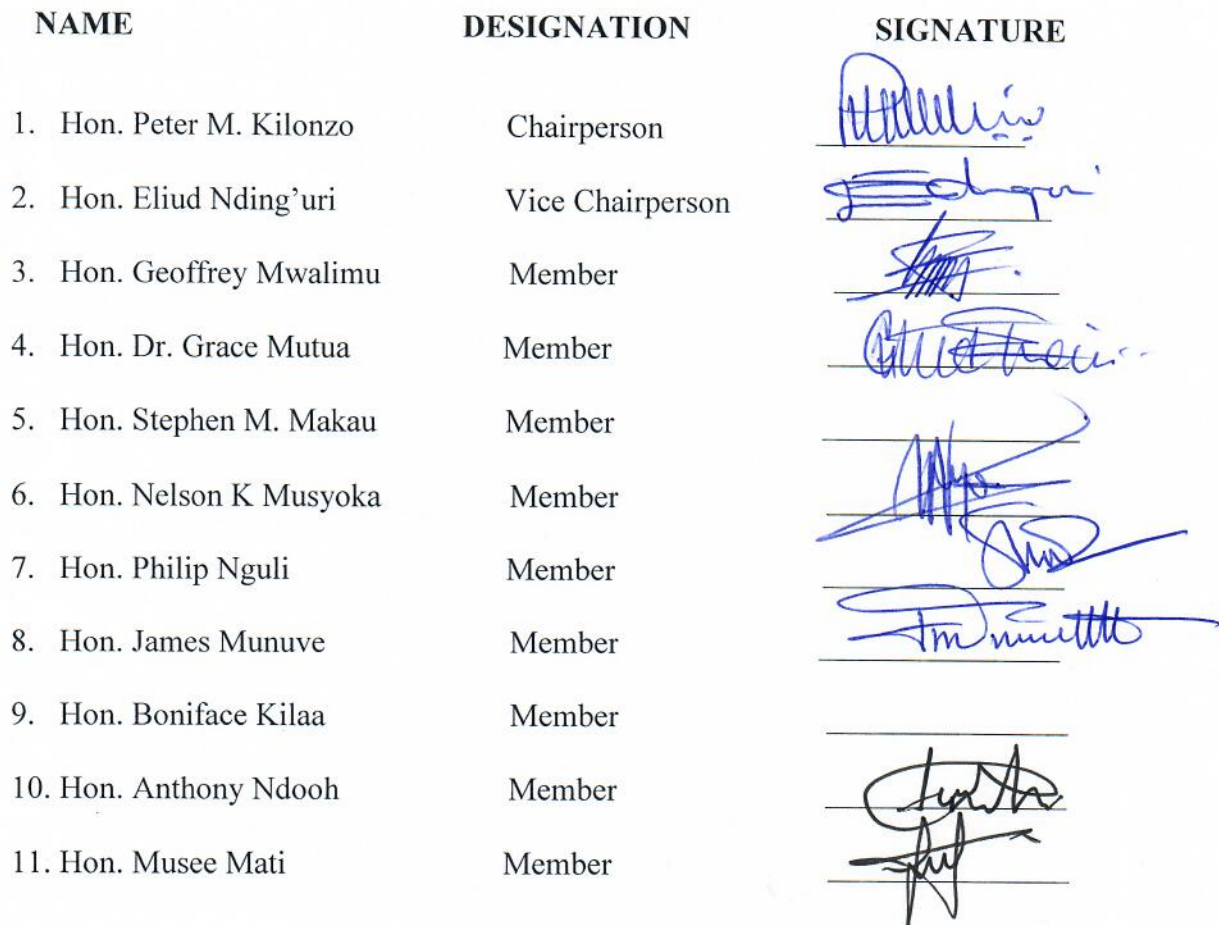 NAME DESIGNATION SIGNATURE
1. Hon. Peter M. Kilonzo Chairperson
2. Hon. Eliud Nding’uri Vice Chairperson
3. Hon. Geoffrey Mwalimu Member
4. Hon. Dr. Grace Mutua Member
5. Hon. Stephen M. Makau Member
6. Hon. Nelson K Musyoka Member
7. Hon. Philip Nguli Member
8. Hon. James Munuve Member
9. Hon. Boniface Kilaa Member
10. Hon. Anthony Ndooh Member
11. Hon. Musee Mati Member